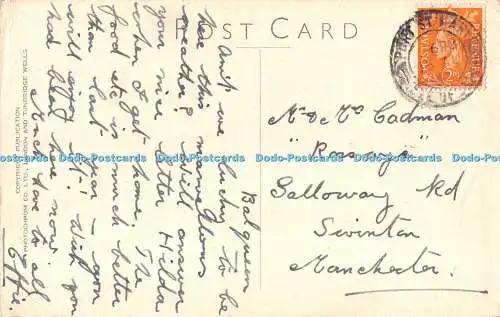 POST CARD
Balqueen
Aint we lucky to be
here this marvellous
weather. Will answer
your nice letter Hilda
when I get home. The
food it is much better
than last year — you
will enjoy it. Wish you
had been here now.
Much love to all
Effie.
Mr & Mrs Cadman
Galloway Rd
Swinton
Manchester.
COPYRIGHT PUBLICATION
PHOTOCHROM CO. LTD., LONDON AND TUNBRIDGE WELLS
POSTAGE REVENUE
Dodo-Postcards Dodo-Postcards Dodo-Postcards Dodo-Postcards Dodo-Postcards Dodo-Postcards